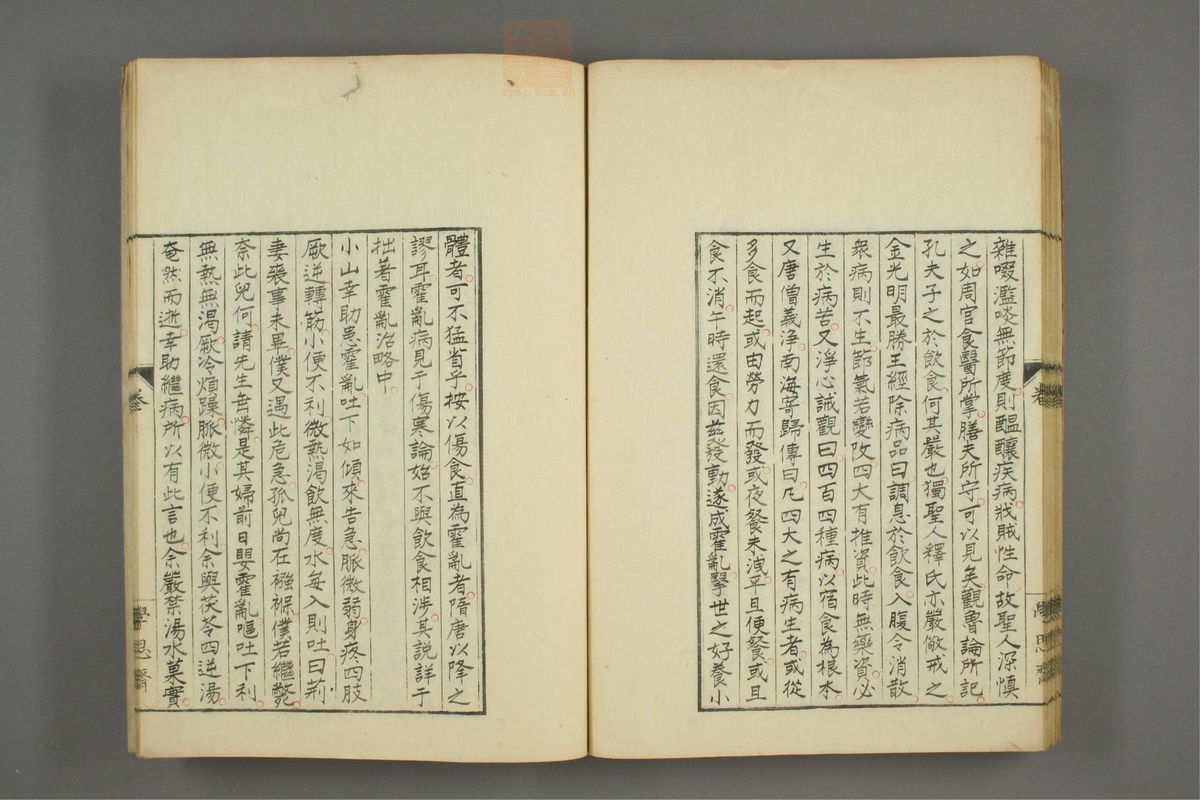 雜啜濫啖無節度則醞釀疾病戕賊性命故聖人深慎
之如周官食醫所掌膳夫所守可以見矣觀魯論所記
孔夫子之於飲食何其嚴也獨聖人釋氏亦嚴儆戒之
金光明最勝王經除病品曰調息於飲食入腹令消散
衆病則不生節氣若變改四大有推資此時無藥資必
生於病苦又淨心誡觀曰四百四種病以宿食為根本
又唐僧義淨南海寄歸傳曰凡四大之有病生者或從
多食而起或由勞力而發或夜餐未洩平旦便餐或旦
食不消午時還食因茲發動遂成霍亂擧世之好養小
體者可不猛省乎按以傷食直為霍亂者隋唐以降之
謬耳霍亂病見于傷寒論始不與飲食相涉其說詳于
拙著霍亂治略中
小山幸助患霍亂吐下如傾來告急脈微弱身疼四肢
厥逆轉筋小便不利微熱渴飲無度水每入則吐曰荊
妻喪事未畢僕又遇此危急孤兒尚在襁褓僕若繼斃
奈此兒何請先生垂憐是其婦前日嬰霍亂嘔吐下利
無熱無渴厥冷煩躁脈微小便不利余與茯苓四逆湯
奄然而逝幸助繼病所以有此言也余嚴禁湯水菓實
卷
學思齋
zysj.com.cn